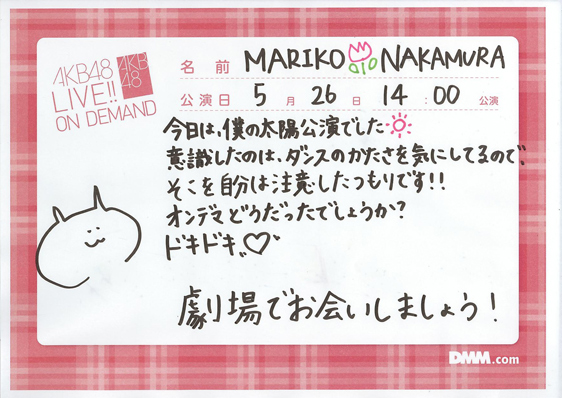 AKB48
LIVE!!
ON DEMAND
AKB
48
名前 MARIKO NAKAMURA
公演日 5月26日 14:00 公演
今日は、僕の太陽公演でした
意識したのは、ダンスのかたさを気にしてるので、
そこを自分は注意したつもりです!!
オンデマどうだったでしょうか?
ドキドキ
劇場でお会いしましょう!
DMM.com